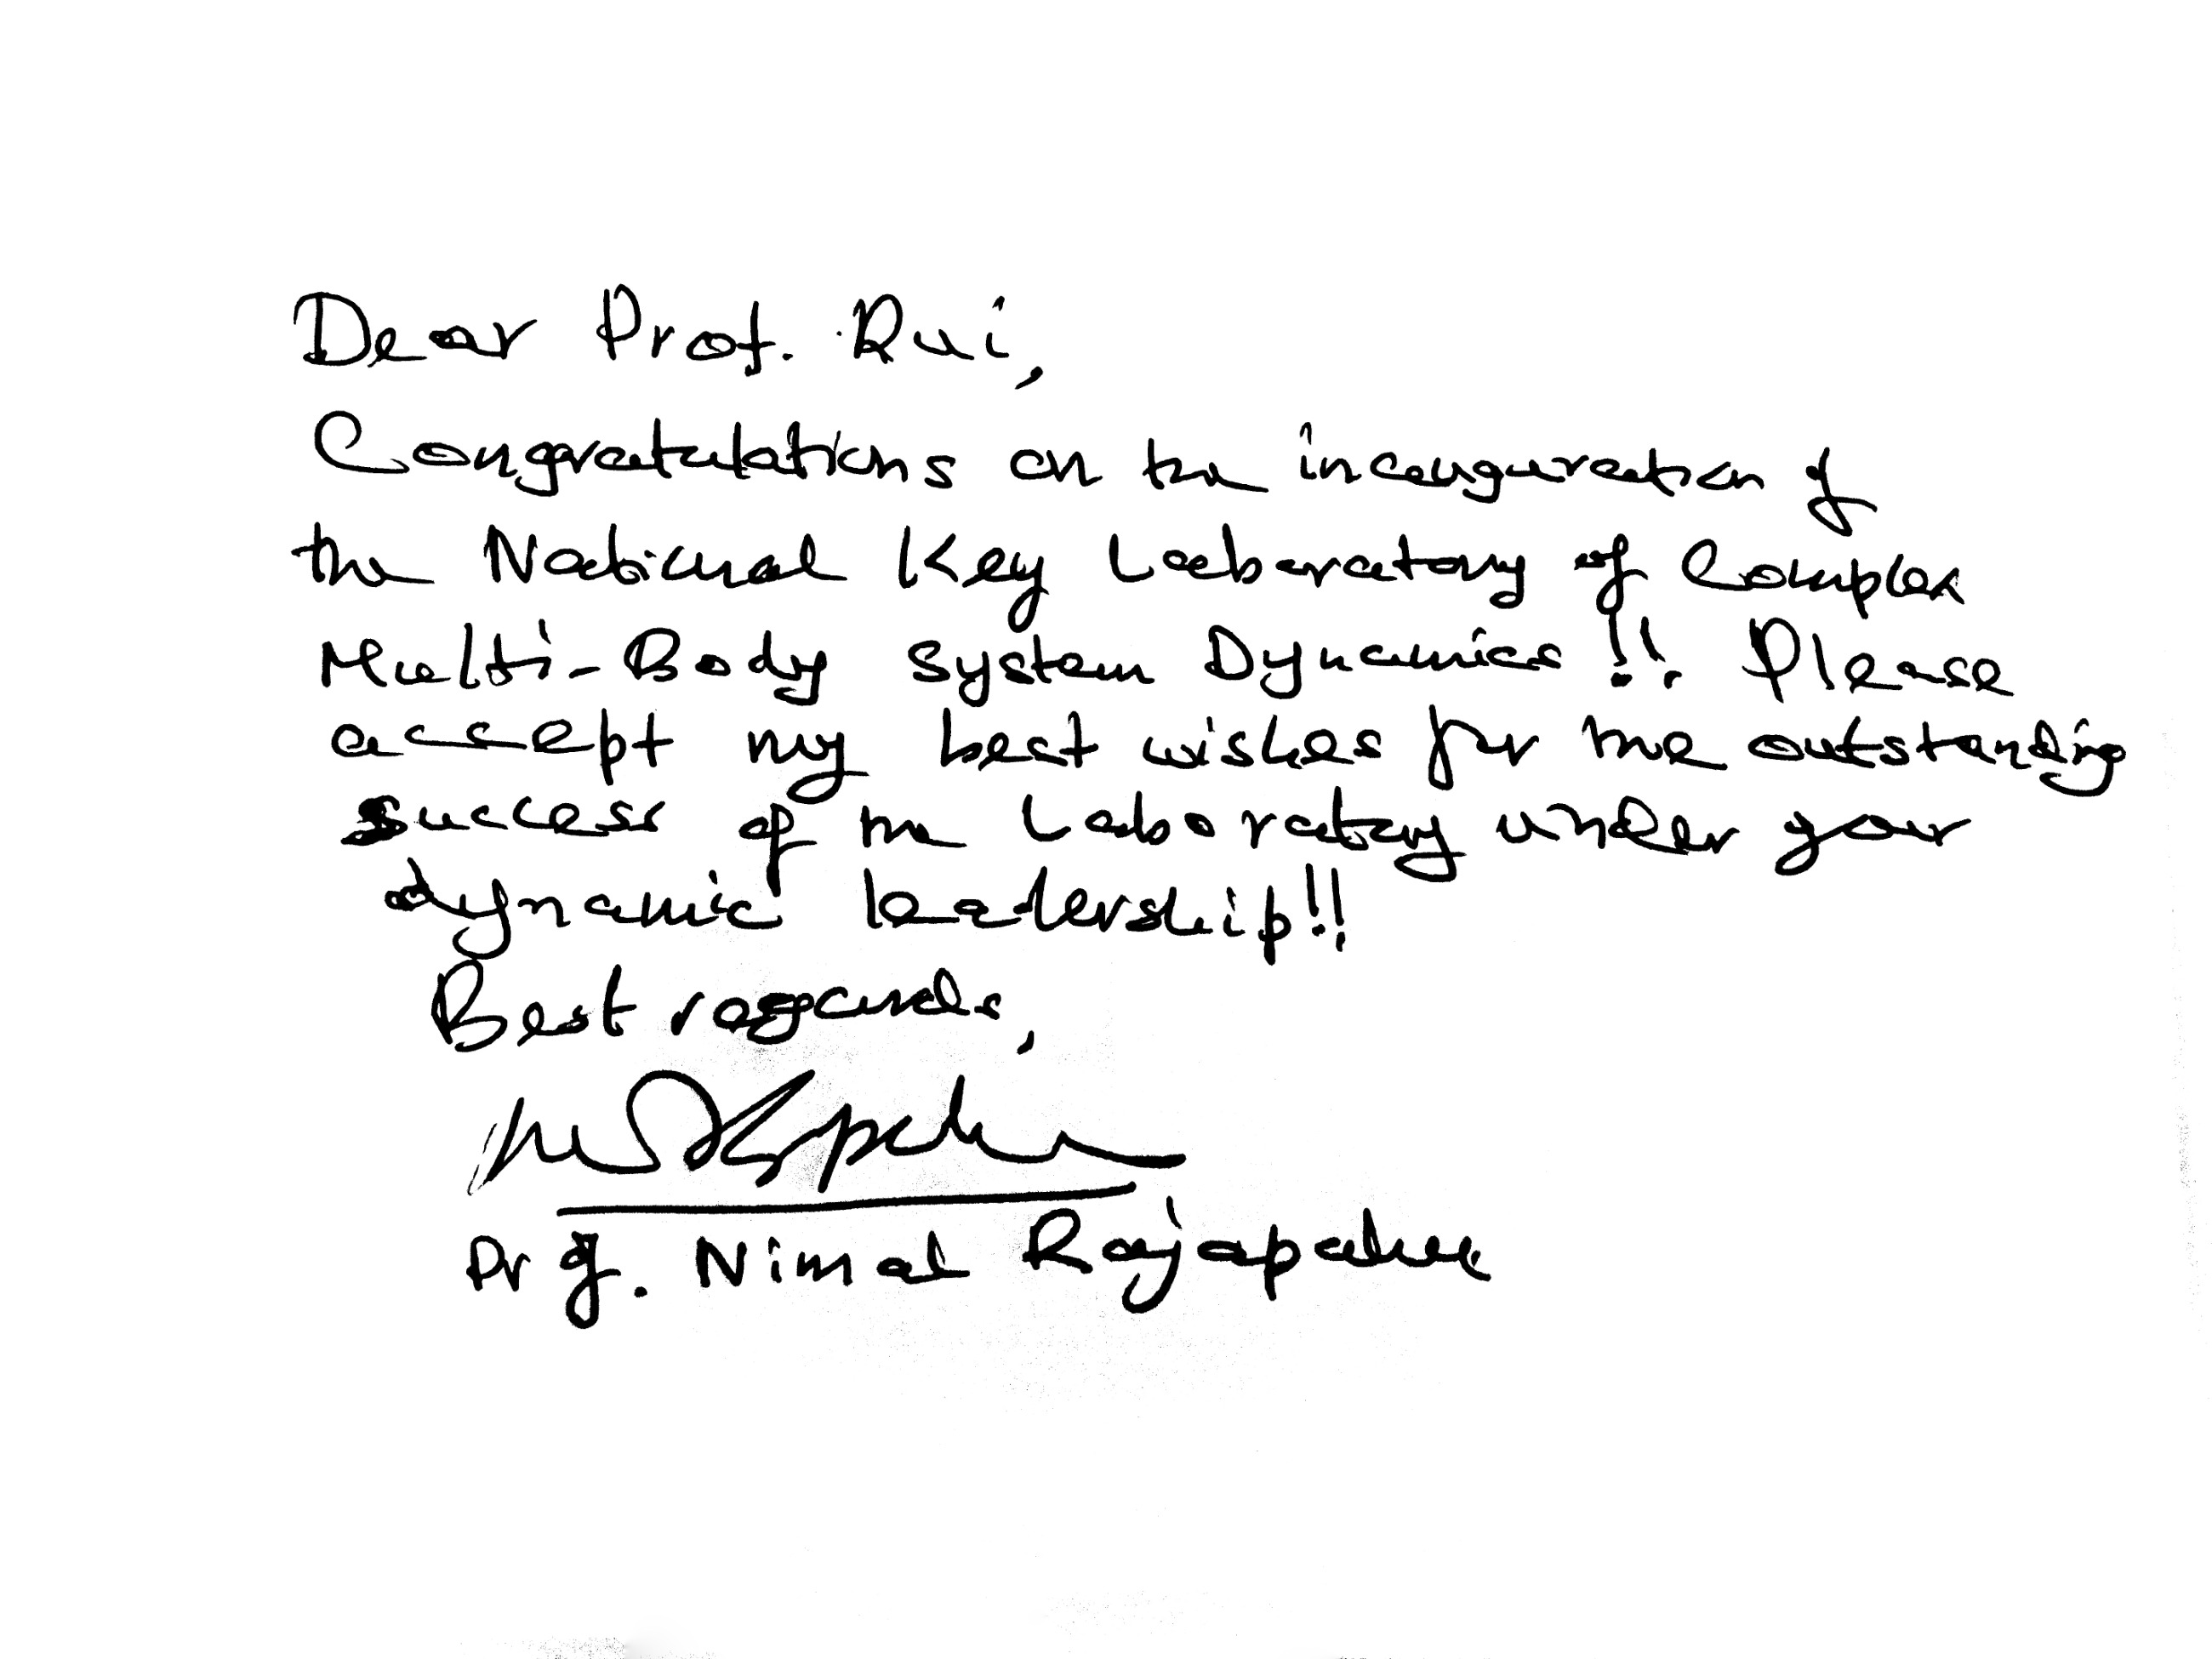 Dear Prof. Rui,
Congratulations on the inauguration of
the National Key Laboratory of Complex
Multi-Body System Dynamics!! Please
accept my best wishes for the outstanding
success of the Laboratory under your
dynamic leadership!!
Best regards,
Prof. Nimal Rajapakse